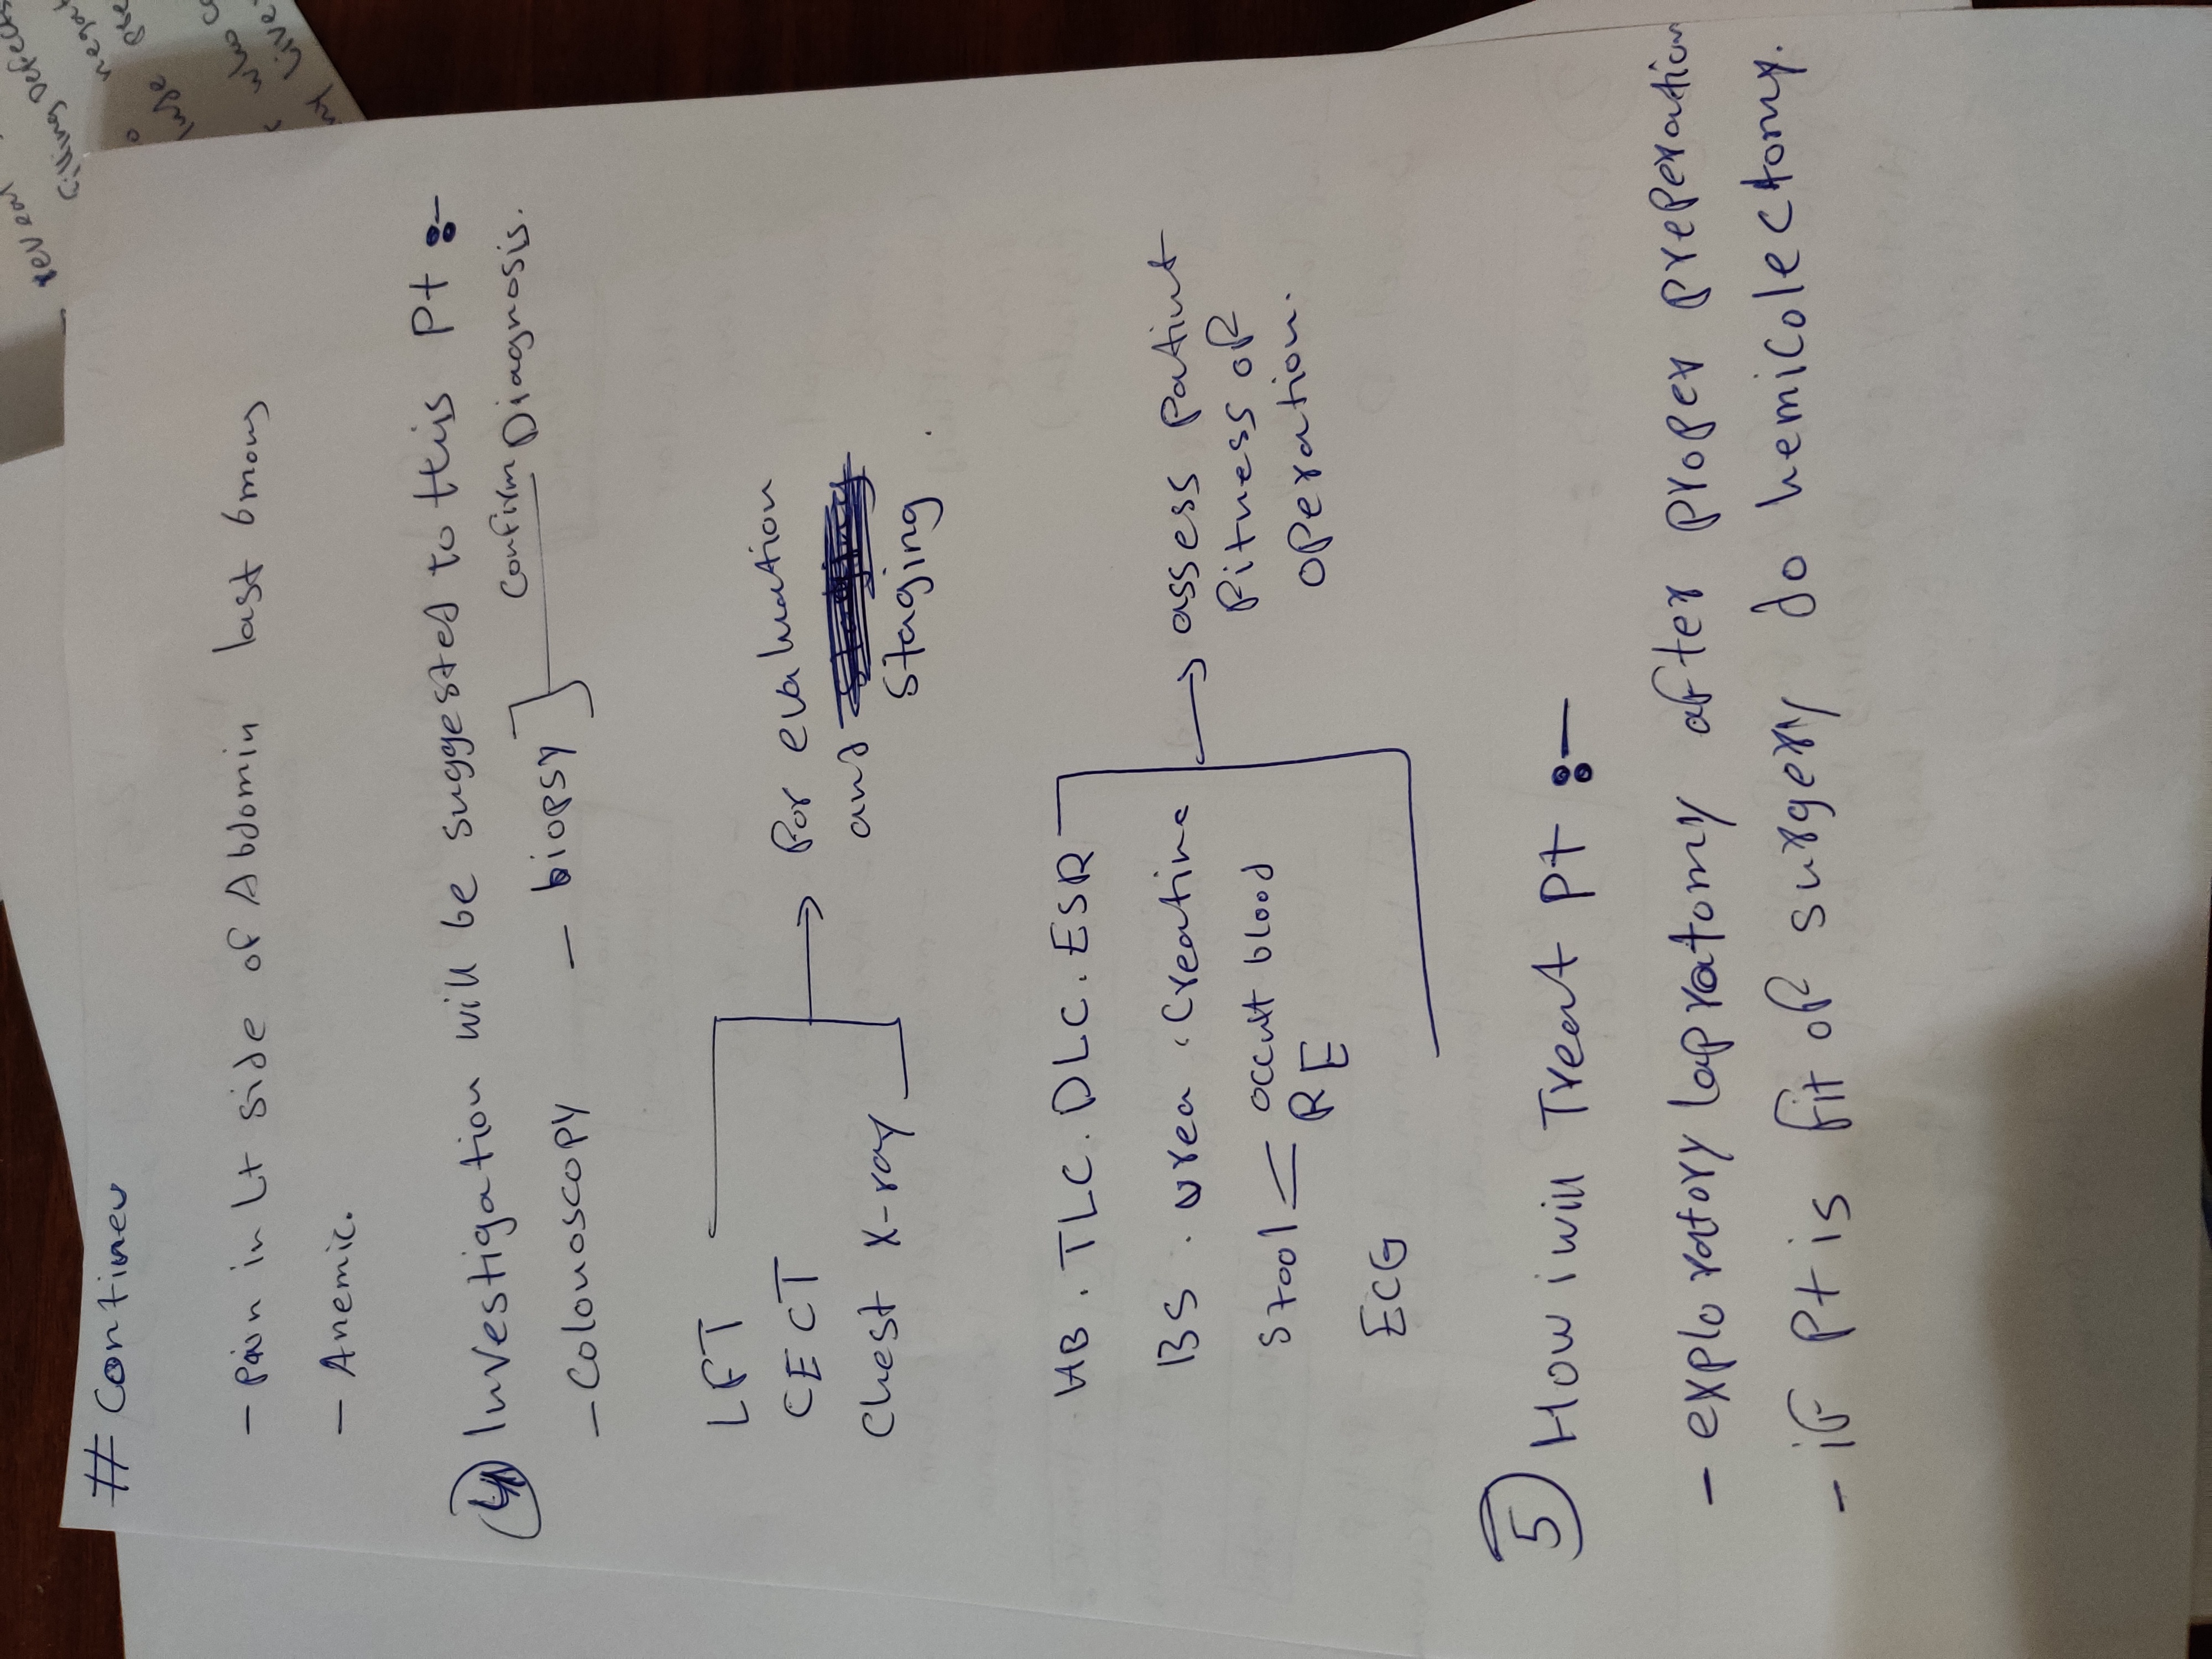 # Continew
- Pain in Lt side of Abdomin last 6 mons
- Anemic.
4 Investigation will be suggested to this Pt :-
- Colonoscopy - biopsy Confirm Diagnosis.
LFT
CECT → For evaluation
Chest X-ray and staging
HB . TLC . DLC . ESR
BS . urea . Creatine → assess Patint
Stool occult blood Fitness of
RE operation.
ECG
5 How i will Treat Pt :-
- exploratory lapratomy after proper preperation
- if Pt is fit of surgery do hemicolectomy.
reveal
Filling Defects
negat